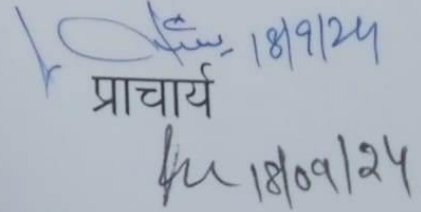 18/9/24
प्राचार्य
18/09/24